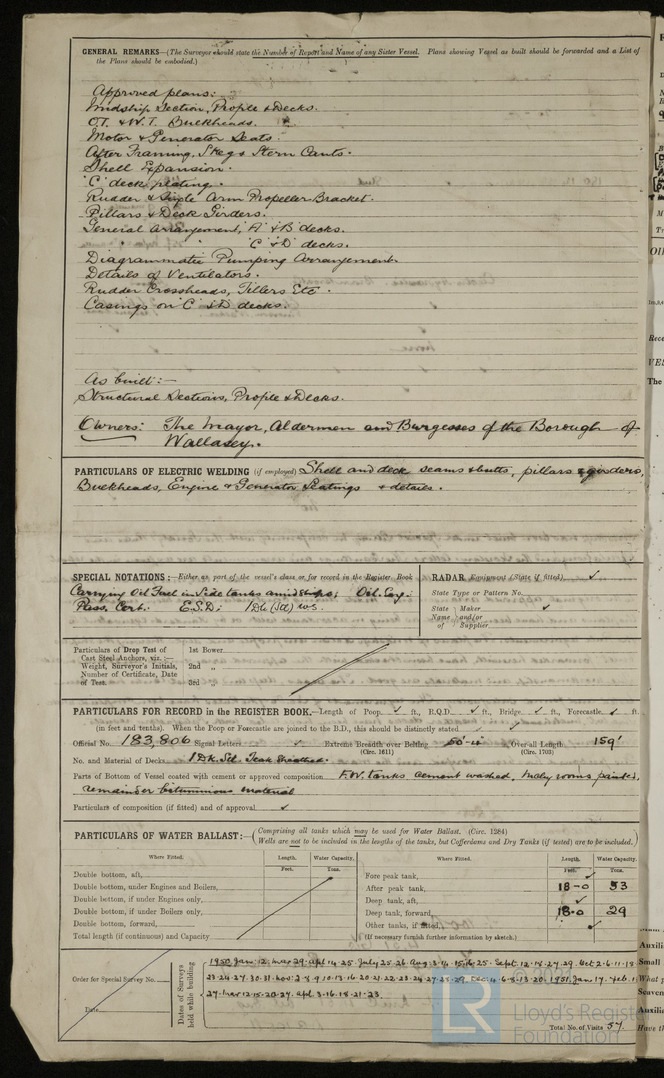 GENERAL REMARKS—(The Surveyor should state the Number of Report and Name of any Sister Vessel. Plans showing Vessel as built should be forwarded and a List of
the Plans should be embodied.)
Approved plans:
Midship Section, Profile & Decks.
O.T. & W.T. Bulkheads.
Motor & Generator Seats.
After Framing, Skeg & Stern Cants.
Shell Expansion.
"C" deck plating.
Rudder & Single Arm Propeller Bracket.
Pillars & Deck Girders.
General arrangement, 'A' & 'B' decks.
" " 'C' & 'D' decks.
Diagrammatic Pumping Arrangement.
Details of Ventilators.
Rudder Crossheads, Tillers Etc.
Casings on 'C' & 'D' decks.
As built:—
Structural Sections, Profile & Decks.
Owners: The Mayor, Aldermen and Burgesses of the Borough of
Wallasey.
PARTICULARS OF ELECTRIC WELDING (if employed) Shell and deck seams & butts, pillars & girders,
Bulkheads, Engine & Generator Seatings & details.
SPECIAL NOTATIONS:—Either as part of the vessel's class or for record in the Register Book
Carrying Oil Fuel in Side tanks amidships; Oil. Eng:
Pass. Cert. E.S.D; 1Dk (Stl) ws.
RADAR Equipment (State if fitted)
State Type or Pattern No.
State Name of Maker and/or Supplier
Particulars of Drop Test of
Cast Steel Anchors, viz.:—
Weight, Surveyor's Initials,
Number of Certificate, Date
of Test.
1st Bower
2nd "
3rd "
PARTICULARS FOR RECORD in the REGISTER BOOK.—Length of Poop ✓ ft., R.Q.D. ✓ ft., Bridge ✓ ft., Forecastle ✓ ft.
(in feet and tenths). When the Poop or Forecastle are joined to the B.D., this should be distinctly stated
Official No. 183,806 Signal Letters Extreme Breadth over Belting 50'-11" Over-all Length 159'
(Circ. 1611) (Circ. 1703)
No. and Material of Decks 1 Dk. Stl. Teak Sheathed.
Parts of Bottom of Vessel coated with cement or approved composition F.W. tanks cement washed, M/chy rooms painted,
remainder bituminous material
Particulars of composition (if fitted) and of approval ✓
PARTICULARS OF WATER BALLAST:— (Comprising all tanks which may be used for Water Ballast. (Circ. 1284)
Wells are not to be included in the lengths of the tanks, but Cofferdams and Dry Tanks (if fitted) are to be included.)
Where Fitted. Length. Water Capacity. Where Fitted. Length. Water Capacity.
Feet. Tons. Feet. Tons.
Double bottom, aft,
Double bottom, under Engines and Boilers,
Double bottom, if under Engines only,
Double bottom, if under Boilers only,
Double bottom, forward,
Total length (if continuous) and Capacity
Fore peak tank, ✓
After peak tank, 18-0 53
Deep tank, aft, ✓
Deep tank, forward, 18-0 29
Other tanks, if fitted, ✓
(If necessary furnish further information by sketch.)
Order for Special Survey No.
Date
Dates of Surveys
held while building
1950 Jan: 12. Mar 29. Apl 14. 25. July 25. 26 Aug 3. 14. 15. 25. Sept. 12. 18. 27. 29. Oct 2. 6. 11. 19
23. 24. 27. 30. 31. Nov. 2. 8. 9. 10. 13. 16. 20. 21. 22. 23. 24. 27. 28. 29. Dec 4. 6. 8. 13. 20. 1951. Jan 17. Feb. 1
27. Mar 12. 15. 20. 27. Apl. 3. 16. 18. 21. 23.
Total No. of Visits 57
© 2021
LR
Lloyd's Register
Foundation